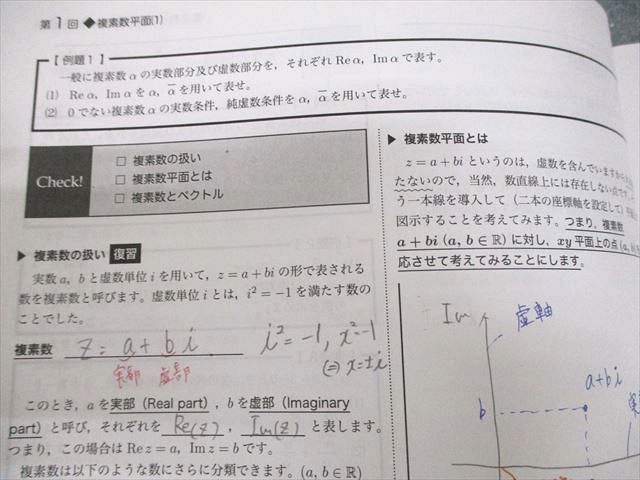 第1回 ◆複素数平面(1)
【例題1】
一般に複素数 α の実数部分及び虚数部分を，それぞれ Re α，Im α で表す。
(1) Re α，Im α を α，\overline{α} を用いて表せ。
(2) 0 でない複素数 α の実数条件，純虚数条件を α，\overline{α} を用いて表せ。
Check!
□ 複素数の扱い
□ 複素数平面とは
□ 複素数とベクトル
▶ 複素数の扱い 復習
実数 a，b と虚数単位 i を用いて，z = a + bi の形で表される
数を複素数と呼びます。虚数単位 i とは，i² = −1 を満たす数の
ことでした。
複素数 z = a + b i
実部 虚部
i² = −1, x² = −1
⇔ x = ±i
このとき，a を実部（Real part），b を虚部（Imaginary
part）と呼び，それぞれを Re(z)，Im(z) と表します。
つまり，この場合は Re z = a，Im z = b です。
複素数は以下のような数にさらに分類できます。(a, b ∈ ℝ)
▶ 複素数平面とは
z = a + bi というのは，虚数を含んでいますから
たないので，当然，数直線上には存在しない点で
う一本線を導入して（二本の座標軸を設定して）
図示することを考えてみます。つまり，複素数
a + bi (a, b ∈ ℝ) に対し，xy 平面上の点 (a,
応させて考えてみることにします。
Im 虚軸
a+bi
b